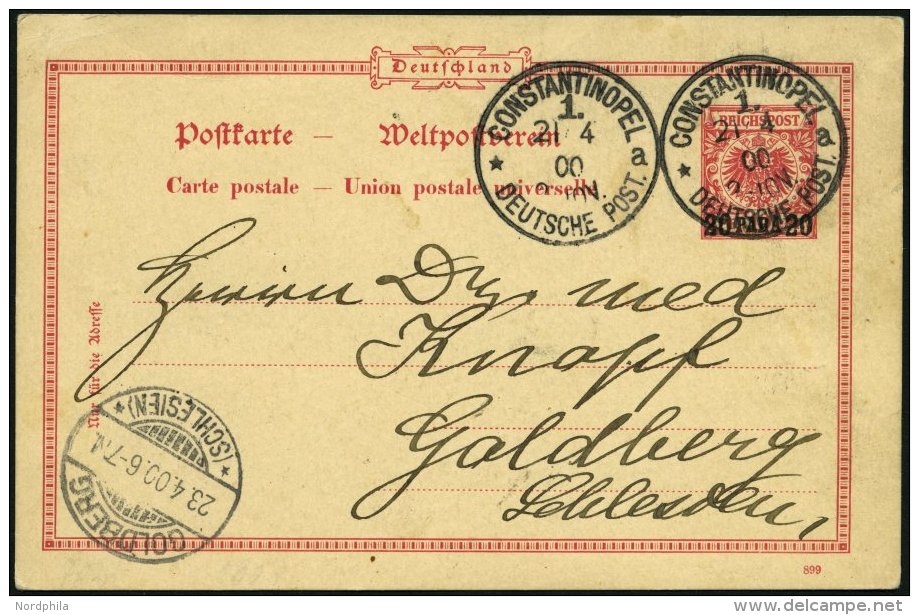 Deutschland
Postkarte — Weltpostverein
Carte postale — Union postale universelle
CONSTANTINOPEL
1.
21 4
00
a
* DEUTSCHE POST.
CONSTANTINOPEL
1.
21 4
00
a
* DEUTSCHE POST.
REICHSPOST
20 PARA 20
Herrn Dr. med
Knopf
Goldberg
Schlesien,
Nur für die Adresse
* (SCHLESIEN) *
23.4.00.6-7N.
GOLDBERG
899
Nordphila
delcampe.net